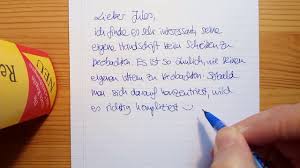 Lieber Jules,
ich finde es sehr interessant, seine
eigene Handschrift beim Schreiben zu
beobachten. Es ist so ähnlich, wie seinen
eigenen Atem zu beobachten. Sobald
man sich darauf konzentriert, wird
es richtig kompliziert